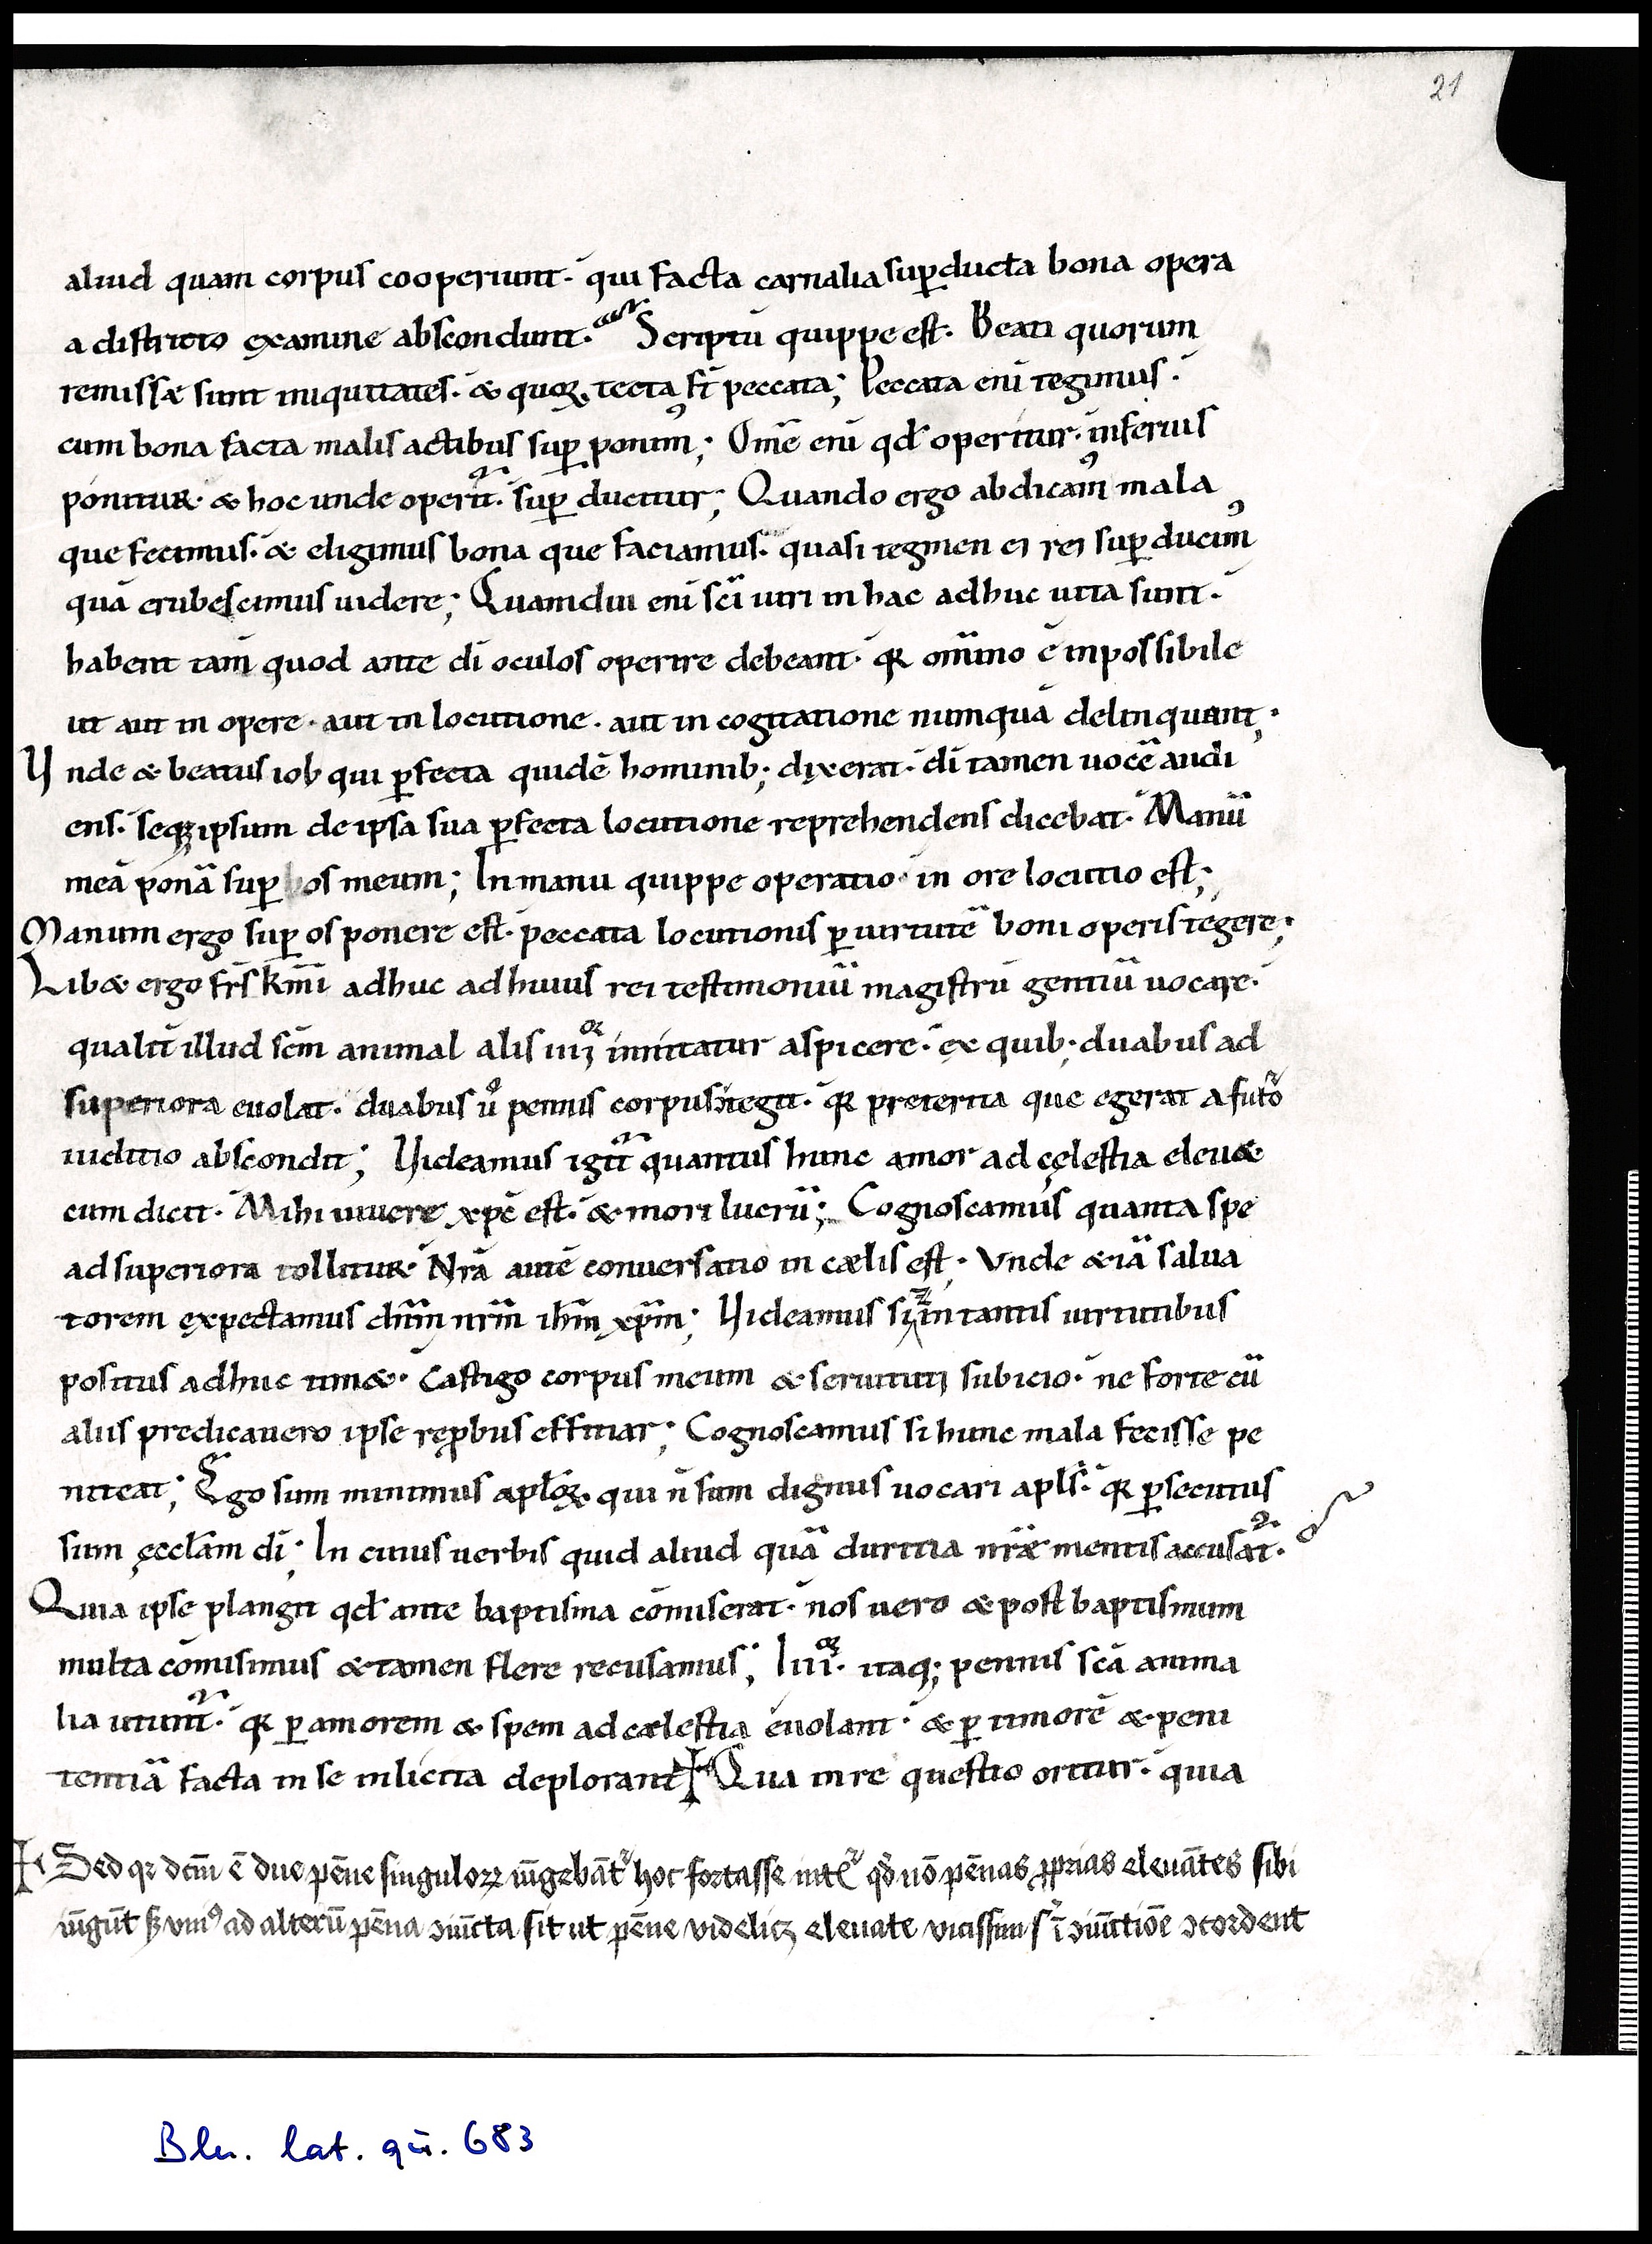 21
aliud quam corpus cooperiunt· qui facta carnalia sup̱ducta bona opera
a districto examine abscondunt· Scriptū quippe est· Beati quorum
remissæ sunt iniquitates· & quoꝝ tecta st̄ peccata; Peccata eni tegimus·
cum bona facta malis actibus suꝑ ponimꝰ; Om̄e eni qđ operitur· inferius
ponitur· & hoc unde operit᷑· suꝑ ducitur; Quando ergo abdicamꝰ mala
que fecimus· & eligimus bona que faciamus· quasi tegmen ei rei suꝑ ducimꝰ
quā erubescimus uidere; Quamdiu eni sc̄i uiri in hac adhuc uita sunt·
habent tam̄ quod ante dī oculos operire debeant· qꝛ om̄ino ē inpossibile
ut aut in opere· aut in locutione· aut in cogitatione numquā delinquant;
Unde & beatus iob qui ꝑfecta quidē hominib; dixerat· dī tamen uocē audi
ens· seqꝫ ipsum de ipsa sua ꝑfecta locutione reprehendens dicebat· Manū
meā ponā suꝑ os meum; In manu quippe operatio· in ore locutio est;
Manum ergo suꝑ os ponere est· peccata locutionis ꝑ uirtutē boni operis tegere;
Lib& ergo frs̄ km̄i adhuc ad huius rei testimoniū magistrū gentiū uocare·
qualit̄ illud sc̄m animal alis iiiioꝛ innitatur aspicere· ex quib; duabus ad
superiora euolat· duabus uͦ pennis corpus tegit· qꝛ preterita que egerat a futͦo
iuditio abscondit; Uideamus igit᷑ quantus hunc amor ad cęlestia eleu&
cum dicit· Mihi uiuere xpc̄ est· & mori lucrū; Cognoscamus quanta spe
ad superiora tollitur· Nrā autē conuersatio in cælis est· Vnde &iā salua
torem expectamus dn̄m nr̄m ihm̄ xpm̄; Uideamus si in tantis uirtutibus
positus adhuc tim&· Castigo corpus meum & seruituti subicio· ne forte cū
aliis predicauero ipse reꝓbus efficiar; Cognoscamus si hunc mala fecisse pe
niteat; Ego sum minimus aplōꝝ· qui n̄ sum dignus uocari apls̄· qꝛ ꝑsecutus
sum ęcclām dī; In cuius uerbis quid aliud quā duritia nr̄æ mentis accusat᷑·
Quia ipse plangit qđ ante baptisma cōmiserat· nos uero & post baptismum
multa cōmisimus & tamen flere recusamus; Iiiioꝛ· itaq; pennis scā anima
lia utunt᷑· qꝛ ꝑ amorem & spem ad cælestia euolant· & ꝑ timorē & peni
tentiā facta in se inlicita deplorant Qua in re questio oritur· quia
Sed qꝛ dcm̄ ē due pēne singuloꝝ iūgebāt᷑ hoc fortasse qđ nō pēnas ꝓprias eleuātes sibi
iūgūt sꝫ uniꝰ ad alterū pēna ꝯiūcta sit ut pēne videlicꝫ eleuate vicissim ꝯiūctiōe ꝯcordent
Bln. lat. qu. 683